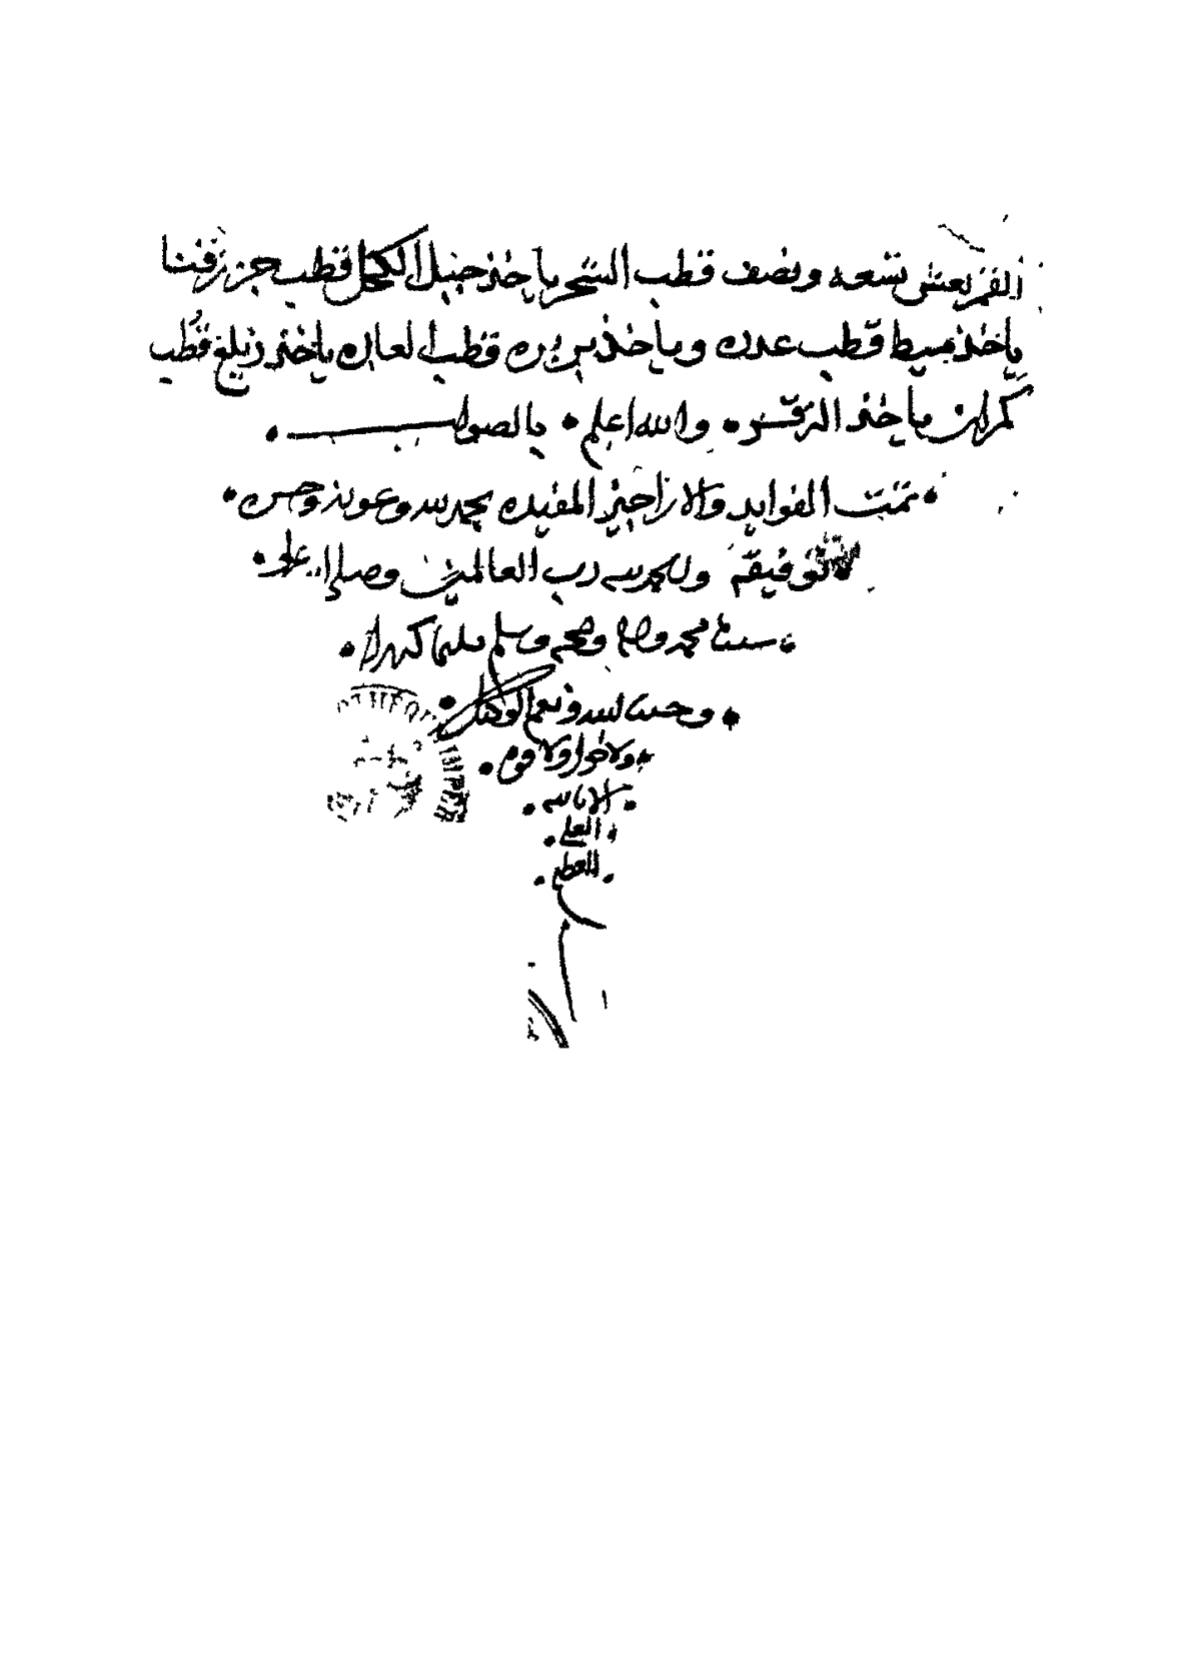 القمر بعشر تسعه ونصف قطب الشحر ياخذ جبل الكحل قطب جزر قنا
ياخذ ميط قطب عدن وياخذ بربره قطب العاره ياخذ زيلع قطب
كمران ياخذ الدقس والله اعلم بالصواب
تمت الفوايد والاراجيز المفيده بحمد الله وعونه وحسن
توفيقه والحمد لله رب العالمين وصلى الله على
سيدنا محمد واله وصحبه وسلم تسليما كثيرا
وحسبنا الله ونعم الوكيل
ولا حول ولا قوه
الا بالله
العلي
العظيم